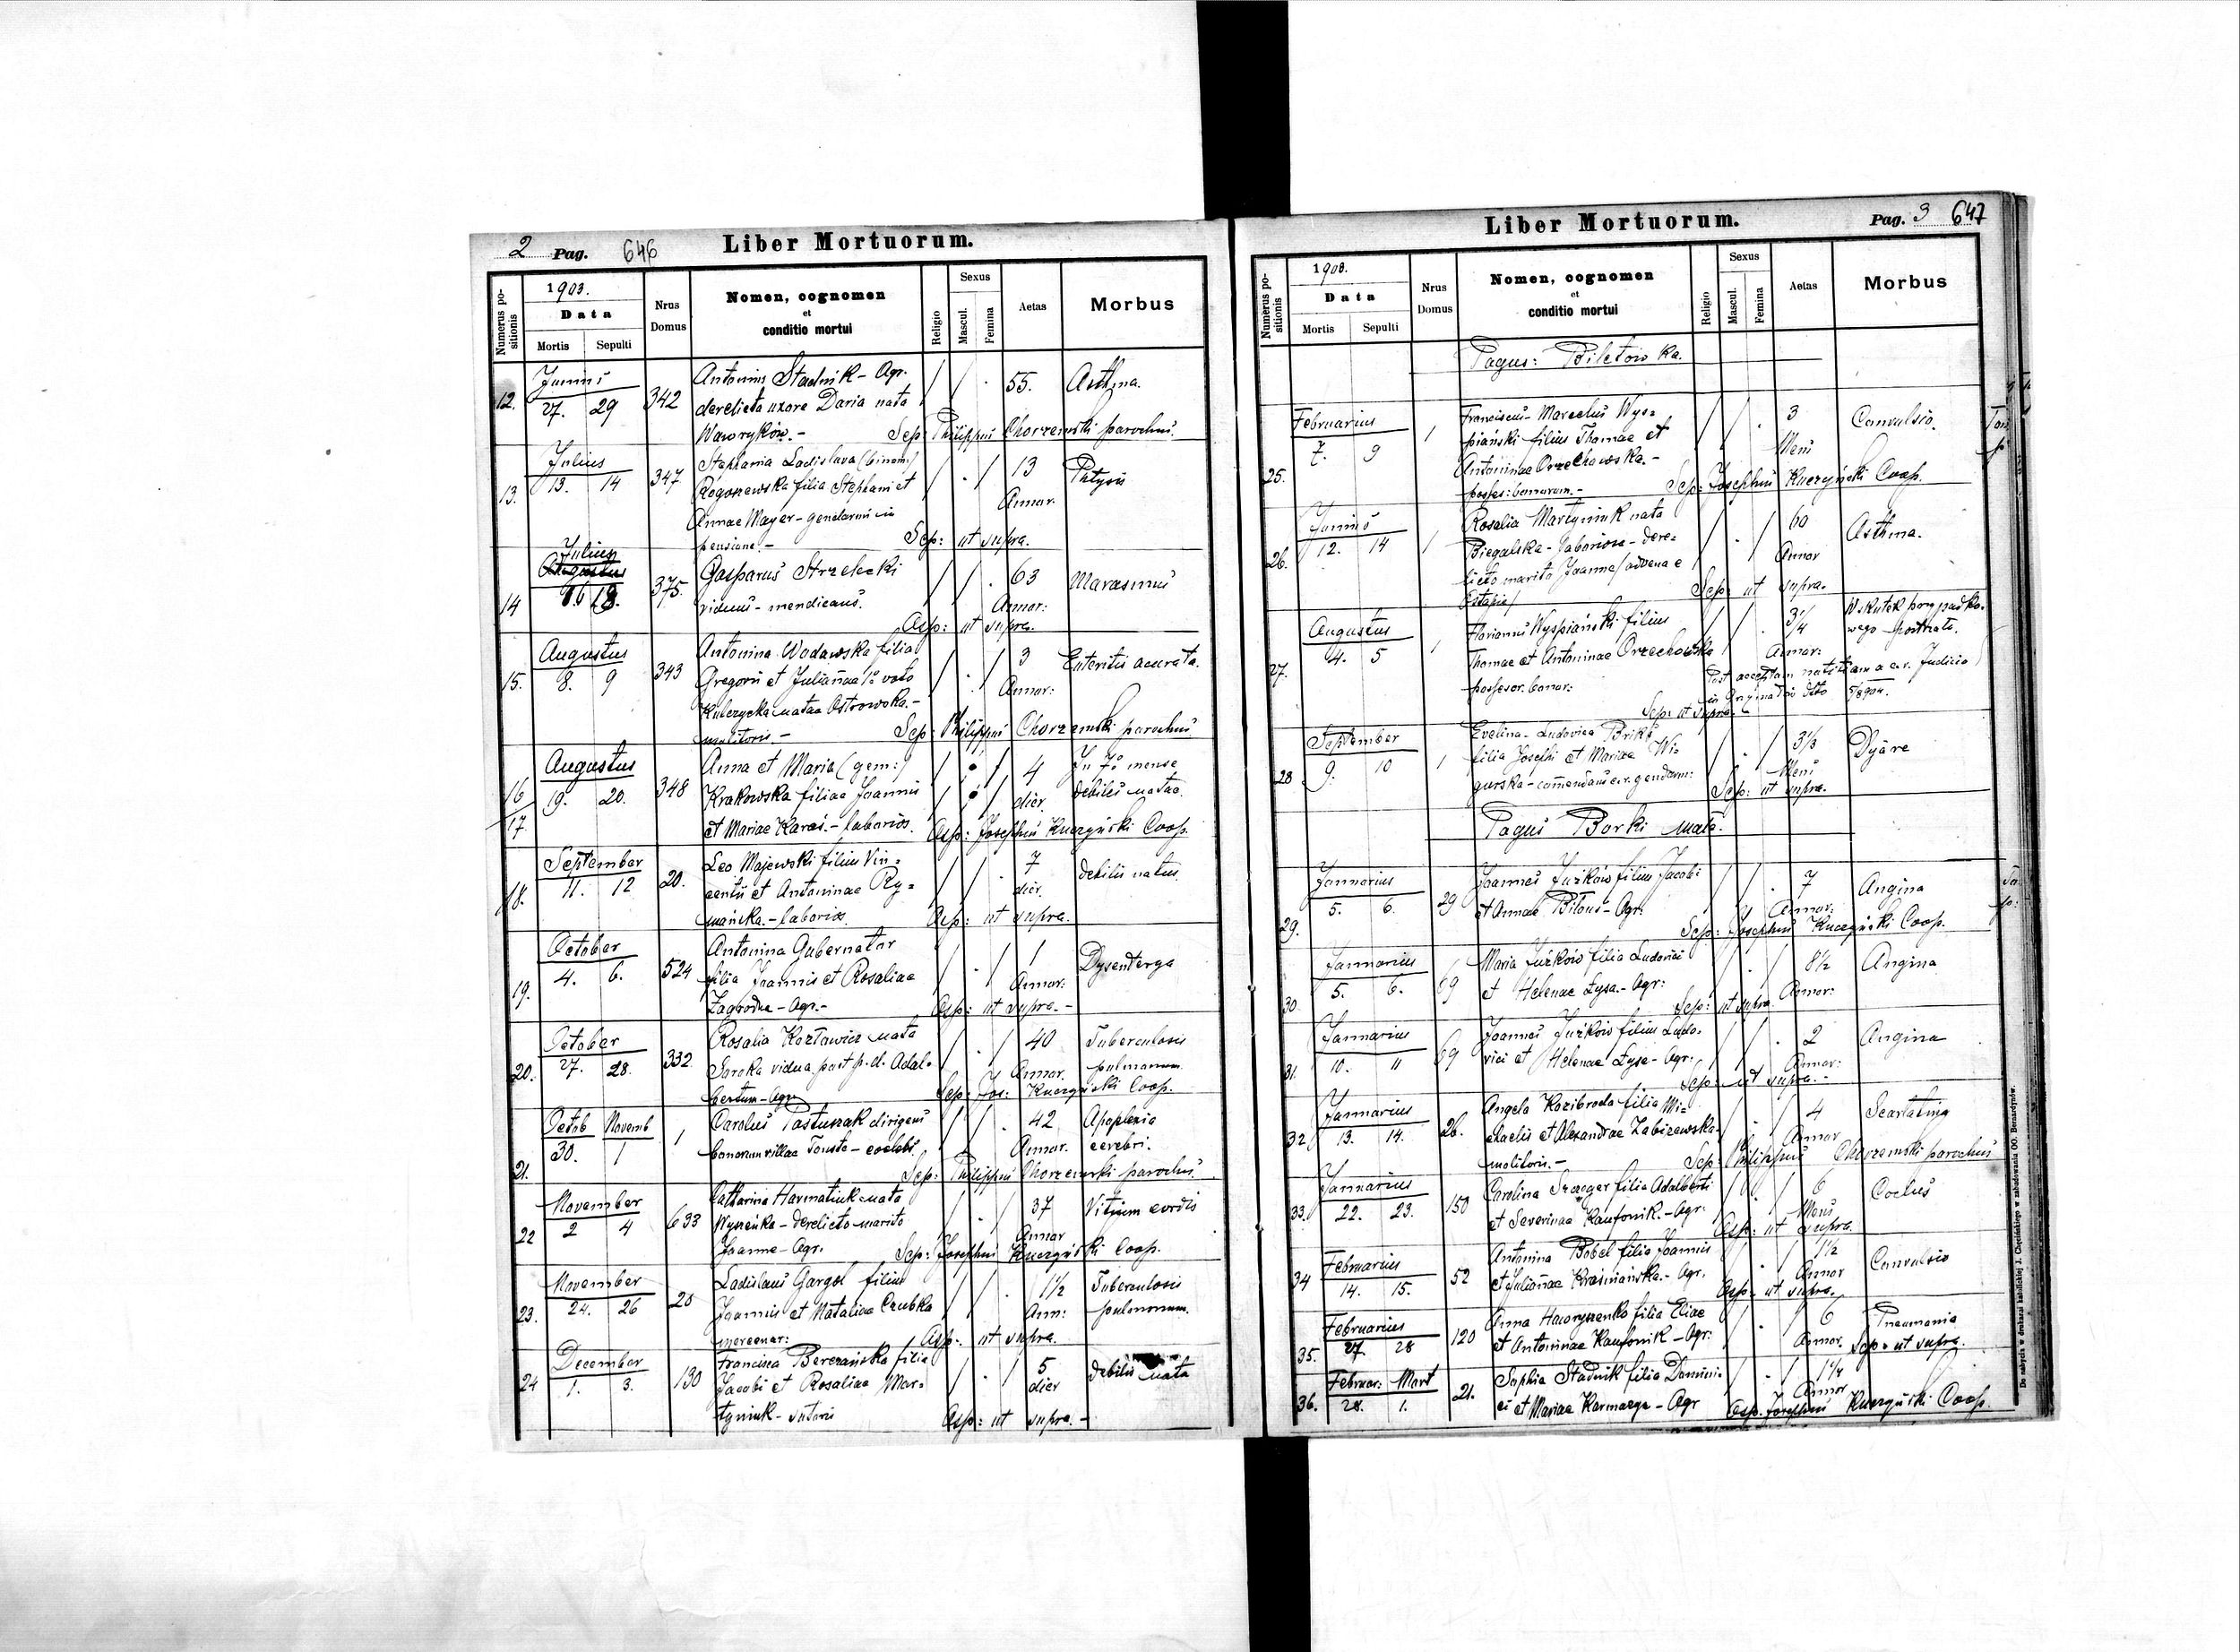 2 Pag. 646 Liber Mortuorum.
Numerus positionis
1903.
Data
Mortis Sepulti
Nrus Domus
Nomen, cognomen
et
conditio mortui
Religio
Sexus
Mascul. Femina
Aetas
Morbus
12. Junius 27. 29 342 Antonius Stadnik - Agr. / / . 55. Asthma.
derelicta uxore Daria nata
Wawryków. - Sep: Philippus Chorzemski parochus.
13. Julius 13. 14 347 Stephania Ladislava (binom:) / . / 13 Phtysis
Rogozewska filia Stephani et Annor.
Annae Mayer - gendarmi in
pensione. - Sep: ut supra.
14 Julius 16 18. 375. Gasparus Strzelecki / / . 63 Marasmus
viduus - mendicans. Annor:
Asp: ut supra.
15. Augustus 8. 9 343 Antonina Wodawska filia / . / 3 Enteritis acurata.
Gregorii et Julianae 1º voto Annor:
Kulczycka natae Ostrowska. -
molitoris - Sep: Philippus Chorzemski parochus
16 17. Augustus 19. 20. 348 Anna et Maria (gem:) / . / 4 In 7º mense
Krakowska filiae Joannis dier. debiles natae.
et Mariae Karaś. - laborios. Asp: Josephus Kuczyński Coop.
18. September 11. 12 20. Leo Majewski filius Vin= / / . 7 debilis natus
centii et Antoninae Ry= dier.
mańska. - laborios. Asp: ut supra.
19. October 4. 6. 524 Antonina Gubernator / . / 1 Dysenterya
filia Joannis et Rosaliae Annor:
Zagrodna - Agr. - Asp: ut supra. -
20. October 27. 28. 332 Rosalia Kozłowicz nata / . / 40 Tuberculosis
Soroka vidua post p. d. Adal= Annor. pulmonum
bertum - Agr. Sep: Jos: Kuczyński Coop.
21. Octob Novemb 30. 1 1 Carolus Pastuszak dirigens / / . 42 Apoplexia
bonorum villae Tousto - coelebs. Annor. cerebri.
Sep: Philippus Chorzemski parochus.
22 November 2 4 693 Catharina Harmatiuk nata / . / 37 Vitium cordis
- derelicto marito Annor
Joanne - Agr. Sep: Josephus Kuczyński Coop.
23. November 24. 26 20 Ladislaus Gargol filius / / . 1½ Tuberculosis
Joannis et Nataliae Czubka Ann: pulmonum.
mercenar: Asp: ut supra.
24 December 1. 3. 130 Francisca Berezańska filia / . / 5 debilis nata
Jacobi et Rosaliae Mar= dier
tyniuk - sutoris Asp: ut supra. -
Liber Mortuorum. Pag. 3 647
Numerus positionis
1903.
Data
Mortis Sepulti
Nrus Domus
Nomen, cognomen
et
conditio mortui
Religio
Sexus
Mascul. Femina
Aetas
Morbus
Pagus: Biletówka.
25. Februarius 7. 9 1 Franciscus - Marcelus Wys= / / . 3 Convulsio.
piański filius Thomae et Mens
Antoninae Orzechowska. -
posses: bonorum. - Sep: Josephus Kuczyński Coop.
26. Junius 12. 14 1 Rosalia Martyniuk nata / . / 60 Asthma.
Biegalska - laboriosa - dere= Annor
licto marito Joanne / advena e
Ostapie / Sep: ut supra.
27. Augustus 4. 5 1 Florianus Wyspiański filius / / . 3¼ Wskutek przypadko=
Thomae et Antoninae Orzechowska Annor: wego postrzału.
possesor. bonor: Post acceptam notitiam a c. r. Judicio
in Grzymałów dtto 5/8 904.
Sep: ut supra.
28 September 9. 10 1 Evelina - Ludovica Briks / . / 3⅓ Dyäre
filia Josephi et Mariae Wi= Mens
gurska - comendans c. r. gendarm: Sep: ut supra.
Pagus Borki małe.
29. Januarius 5. 6. 29 Joannes Juźków filius Jacobi / / . 7 Angina
et Annae Bilous - Agr: Annor:
Sep: Josephus Kuczyński Coop.
30 Januarius 5. 6. 69 Maria Juźków filia Ludovici / . / 8½ Angina
et Helenae Łysa. - Agr: Annor:
Sep: ut supra
31. Januarius 10. 11 69 Joannes Juźków filius Ludo= / / . 2 Angina
vici et Helenae Łysa - Agr: Annor:
Sep: ut supra. -
32 Januarius 13. 14. 26. Angela Kozibroda filia Mi= / . / 4 Scarlatina
chaelis et Alexandrae Zabizewska. Annor
molitoris. - Sep: Philippus Chorzemski parochus
33. Januarius 22. 23. 150 Carolina Szwager filia Adalberti / . / 6 Coclus
et Severinae Kanfonik. - Agr. Mens
Asp: ut supra.
34 Februarius 14. 15. 52 Antonina Bobel filia Joannis / . / 1½ Convulsio
et Julianae Kraśniańska. - Agr. Annor
Asp: ut supra.
35. Februarius 27. 28 120 Anna Haworynenko filia Eliae / . / 6 Pneumonia
et Antoninae Kanfonik - Agr: Annor. Sep: ut supra.
36. Februar: Mart 28. 1. 21. Sophia Stadnik filia Domini= / . / 1¼
ci et Mariae Karmazyn - Agr Annor
Asp. Josephus Kuczyński Coop.
Do nabycia w drukarni katolickiej J. Chęcińskiego w zabudowaniu OO. Bernardynów.